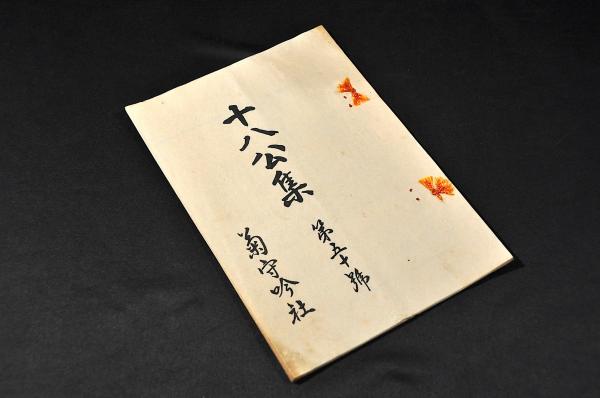 第五十號
十八公集
菊守吟社